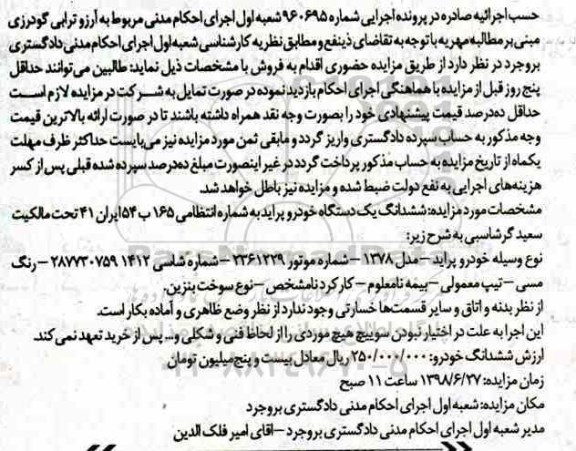 حسب اجرائیه صادره در پرونده اجرایی شماره ۹۶۰۶۹۵ شعبه اول اجرای احکام مدنی مربوط به آرزو ترابی گودرزی
مبنی بر مطالبه مهریه با توجه به تقاضای ذینفع و مطابق نظریه کارشناسی شعبه اول اجرای احکام مدنی دادگستری
بروجرد در نظر دارد از طریق مزایده حضوری اقدام به فروش با مشخصات ذیل نماید: طالبین می توانند حداقل
پنج روز قبل از مزایده با هماهنگی اجرای احکام بازدید نموده در صورت تمایل به شرکت در مزایده لازم است
حداقل ده درصد قیمت پیشنهادی خود را بصورت وجه نقد همراه داشته باشند تا در صورت ارائه بالاترین قیمت
وجه مذکور به حساب سپرده دادگستری واریز گردد و مابقی ثمن مورد مزایده نیز می بایست حداکثر ظرف مهلت
یکماه از تاریخ مزایده به حساب مذکور پرداخت گردد در غیر اینصورت مبلغ ده درصد سپرده شده قبلی پس از کسر
هزینه های اجرایی به نفع دولت ضبط شده و مزایده نیز باطل خواهد شد.
مشخصات مورد مزایده: ششدانگ یک دستگاه خودرو پراید به شماره انتظامی ۱۶۵ ب ۵۴ ایران ۴۱ تحت مالکیت
سعید گرشاسبی به شرح زیر:
نوع وسیله خودرو پراید – مدل ۱۳۷۸ – شماره موتور ۲۳۶۱۲۲۹ – شماره شاسی ۱۴۱۲ ۲۸۷۷۳۰۷۵۹ – رنگ
مسی – تیپ معمولی – بیمه نامعلوم – کارکرد نامشخص – نوع سوخت بنزین.
از نظر بدنه و اتاق و سایر قسمت‌ها خسارتی وجود ندارد از نظر وضع ظاهری و آماده بکار است.
این اجرا به علت در اختیار نبودن سوییچ هیچ موردی را از لحاظ فنی و شکلی و... پس از خرید تعهد نمی کند.
ارزش ششدانگ خودرو: ۲۵۰/۰۰۰/۰۰۰ ریال معادل بیست و پنج میلیون تومان
زمان مزایده: ۱۳۹۸/۶/۲۷ ساعت ۱۱ صبح
مکان مزایده: شعبه اول اجرای احکام مدنی دادگستری بروجرد
مدیر شعبه اول اجرای احکام مدنی دادگستری بروجرد – آقای امیر فلک الدین